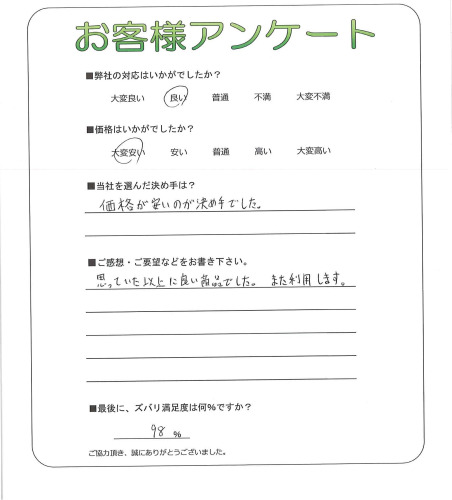 お客様アンケート
■弊社の対応はいかがでしたか？
大変良い 良い 普通 不満 大変不満
■価格はいかがでしたか？
大変安い 安い 普通 高い 大変高い
■当社を選んだ決め手は？
価格が安いのが決め手でした。
■ご感想・ご要望などをお書き下さい。
思っていた以上に良い商品でした。 また利用します。
■最後に、ズバリ満足度は何％ですか？
98 ％
ご協力頂き、誠にありがとうございました。